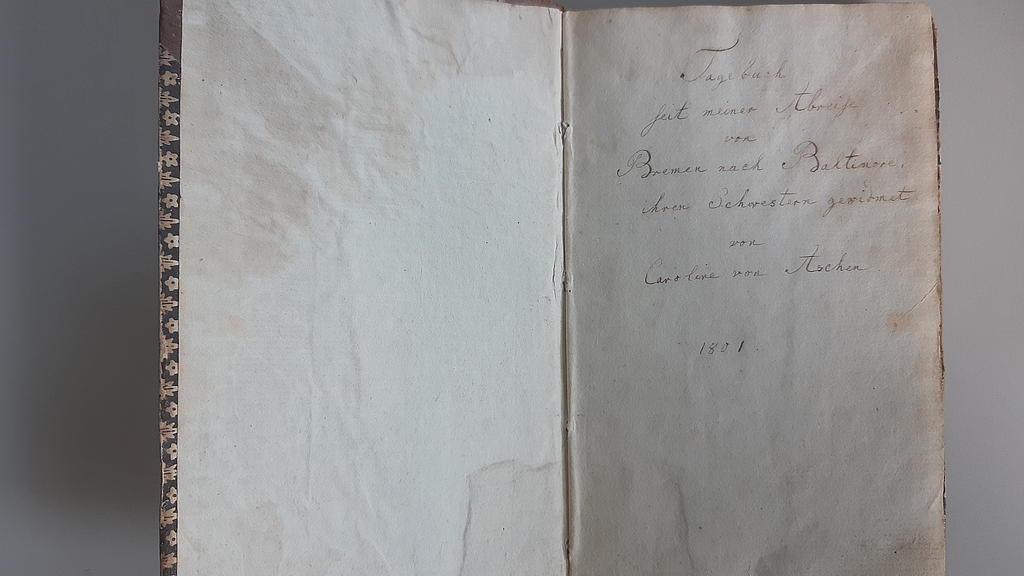 Tagebuch
seit meiner Abreise
von
Bremen nach Baltimore,
ihren Schwestern gewidmet
von
Caroline von Aschen
1801.